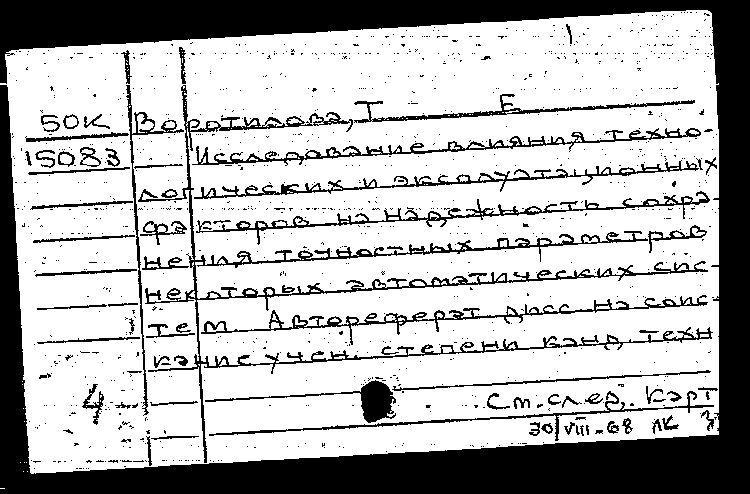 50К Воротилова, Т Е
15083 Исследование влияния техно-
логических и эксплуатационных
факторов на надежность сохра-
нения точностных параметров
некоторых автоматических сис-
тем. Автореферат дисс на соис-
кание учен. степени канд. техн
4 См. след. карт
30/VIII-68 ЛК